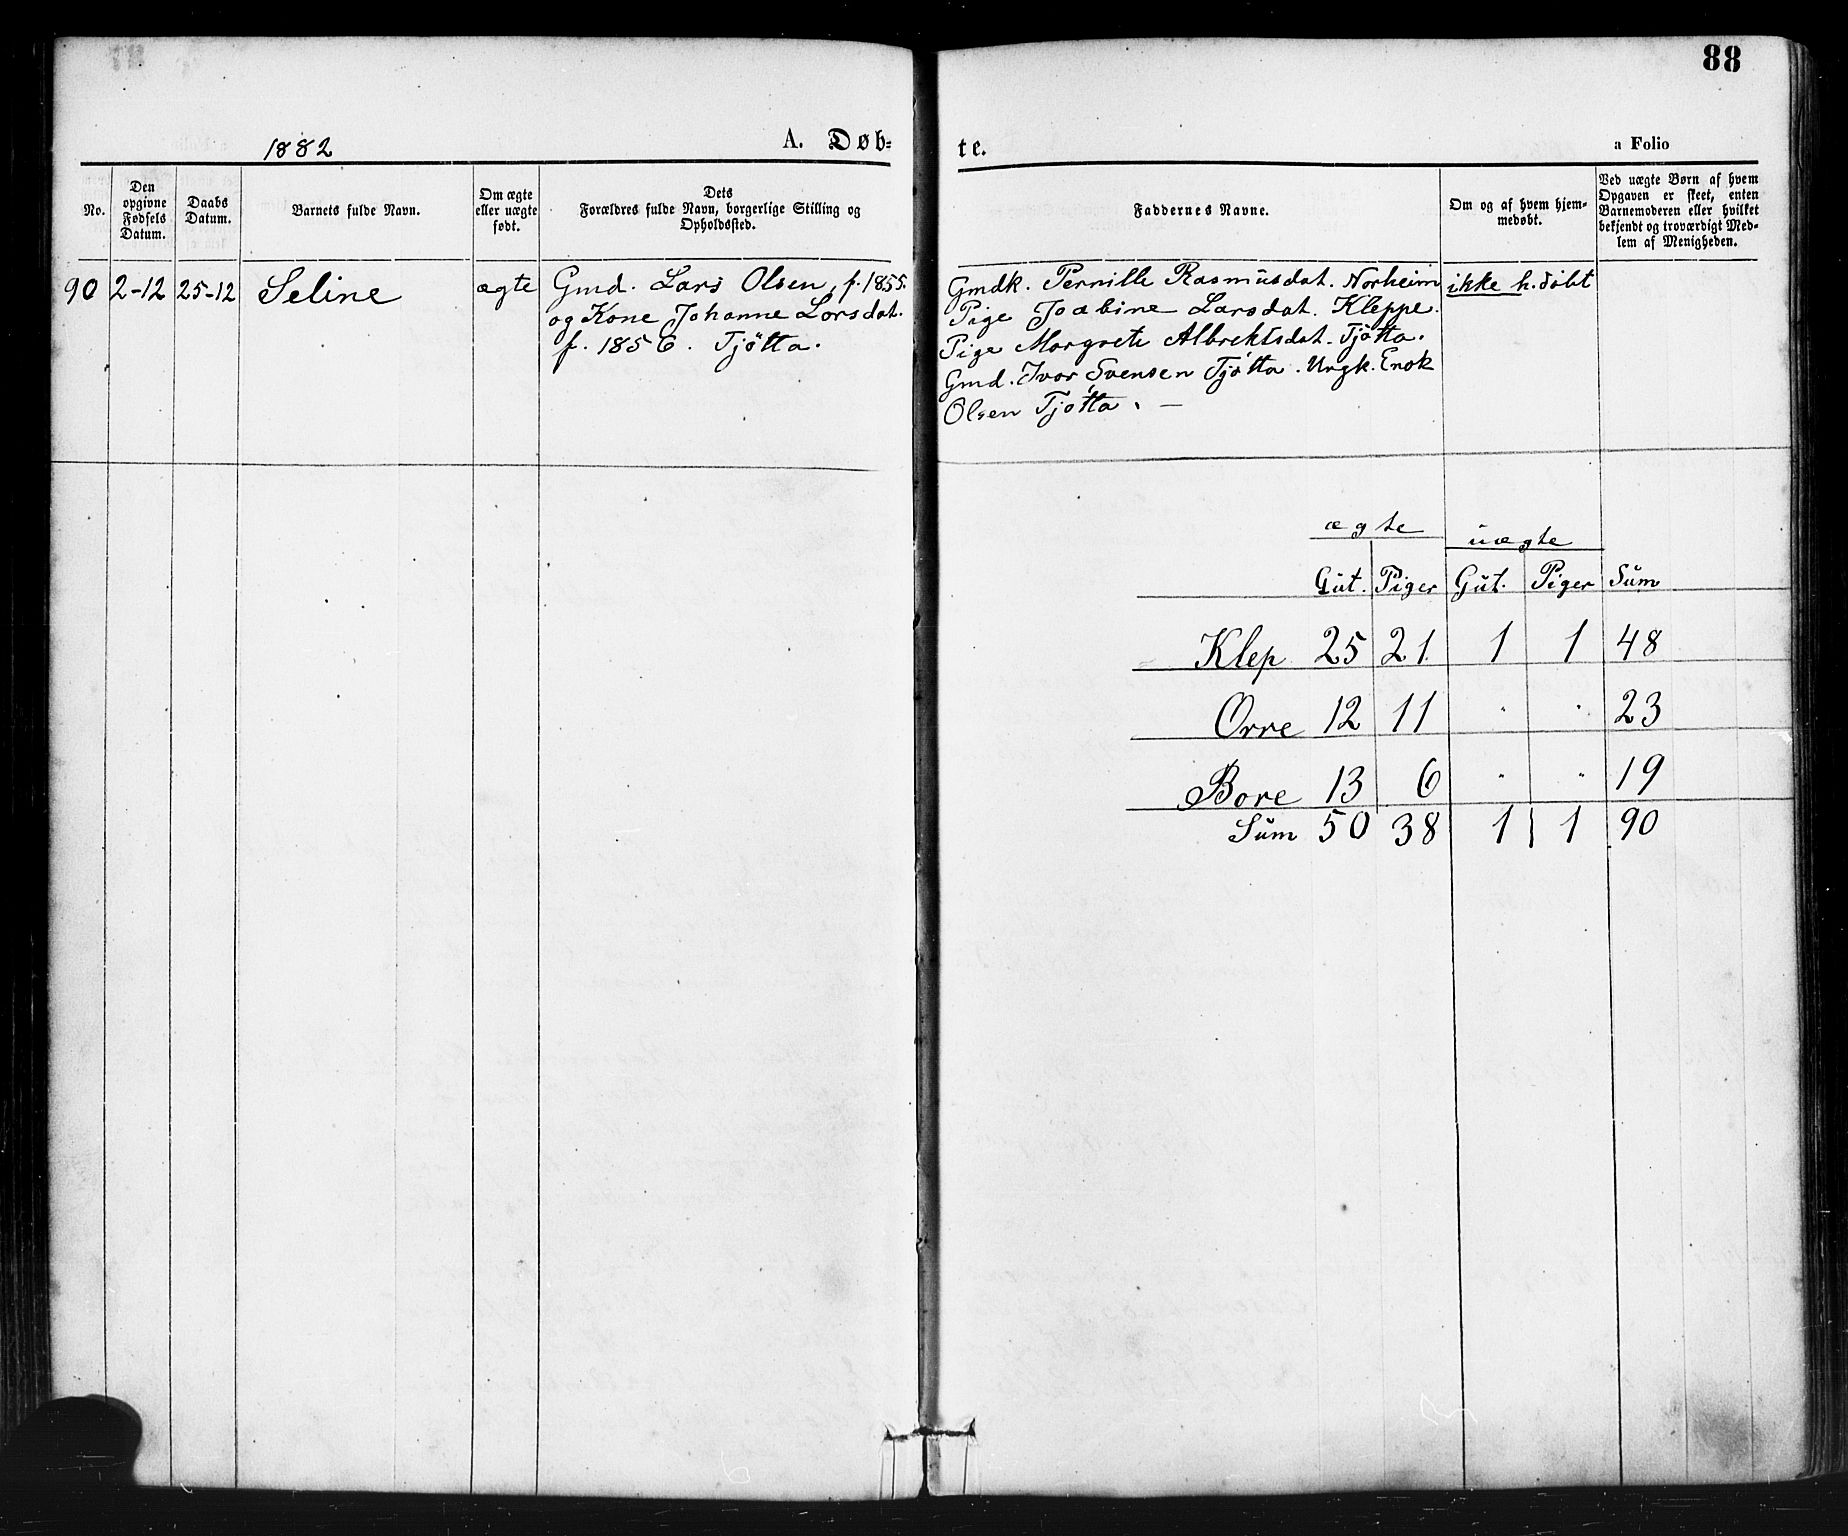 88
1882
A. Døb-
te.
a Folio
No.
Den
opgivne
Fødsels
Datum.
Daabs
Datum.
Barnets fulde Navn.
Om ægte
eller uægte
født.
Dets
Forældres fulde Navn, borgerlige Stilling og
Opholdssted.
Faddernes Navne.
Om og af hvem hjem-
medøbt.
Ved uægte Børn af hvem
Opgaven er skeet, enten
Barnemoderen eller hvilket
bekjendt og troværdigt Med-
lem af Menigheden.
90 2-12 25-12 Seline ægte
Gmd. Lars Olsen, f. 1855.
og Kone Johanne Larsdat.
f. 1856. Tjøtta.
Gmdk. Pernille Rasmusdat. Norheim
Pige Joabine Larsdat. Kleppe.
Pige Margrete Albrektsdat. Tjøtta.
Gmd. Ivar Svensen Tjøtta. Ungk. Enok
Olsen Tjøtta. —
ikke h. døbt
ægte uægte
Gut. Piger Gut. Piger Sum
Klep 25 21. 1 1 48
Orre 12 11 " " 23
Bore 13 6 " " 19
Sum 50 38 1 1 90